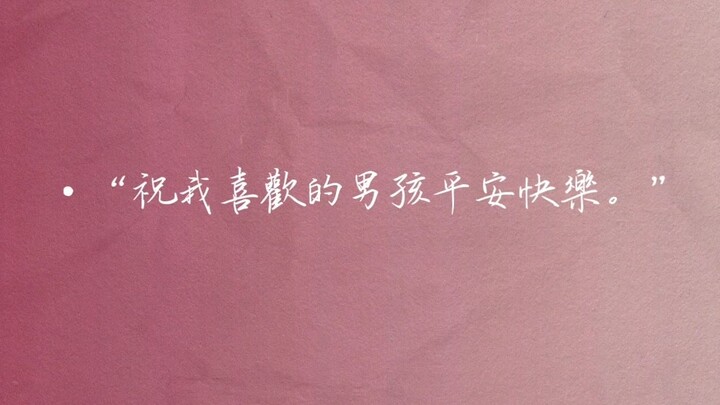 •“祝我喜歡的男孩平安快樂。”